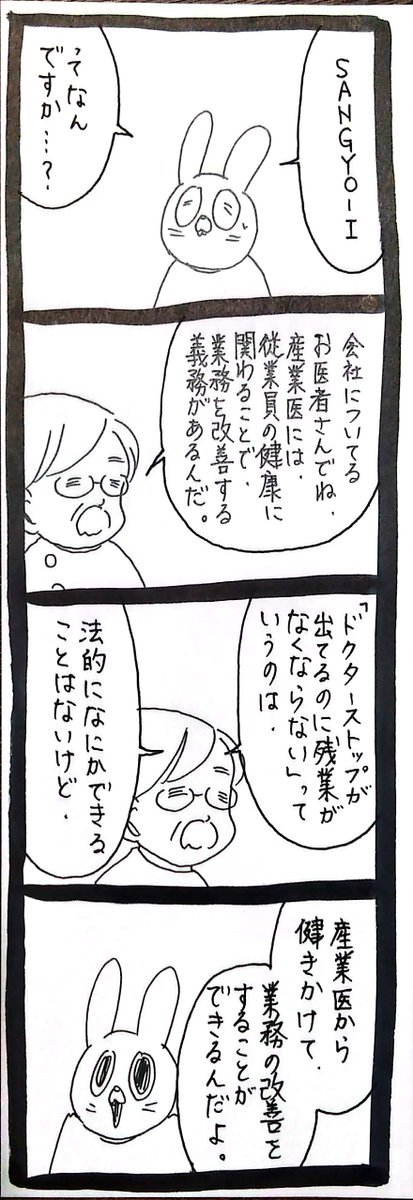 SANGYO-I
ってなん
ですか…?
会社についてる
お医者さんでね、
産業医には、
従業員の健康に
関わることで、
業務を改善する
義務があるんだ。
「ドクターストップが
出てるのに残業が
なくならない」って
いうのは、
法的になにかできる
ことはないけど、
産業医から
働きかけて、
業務の改善を
することが
できるんだよ。